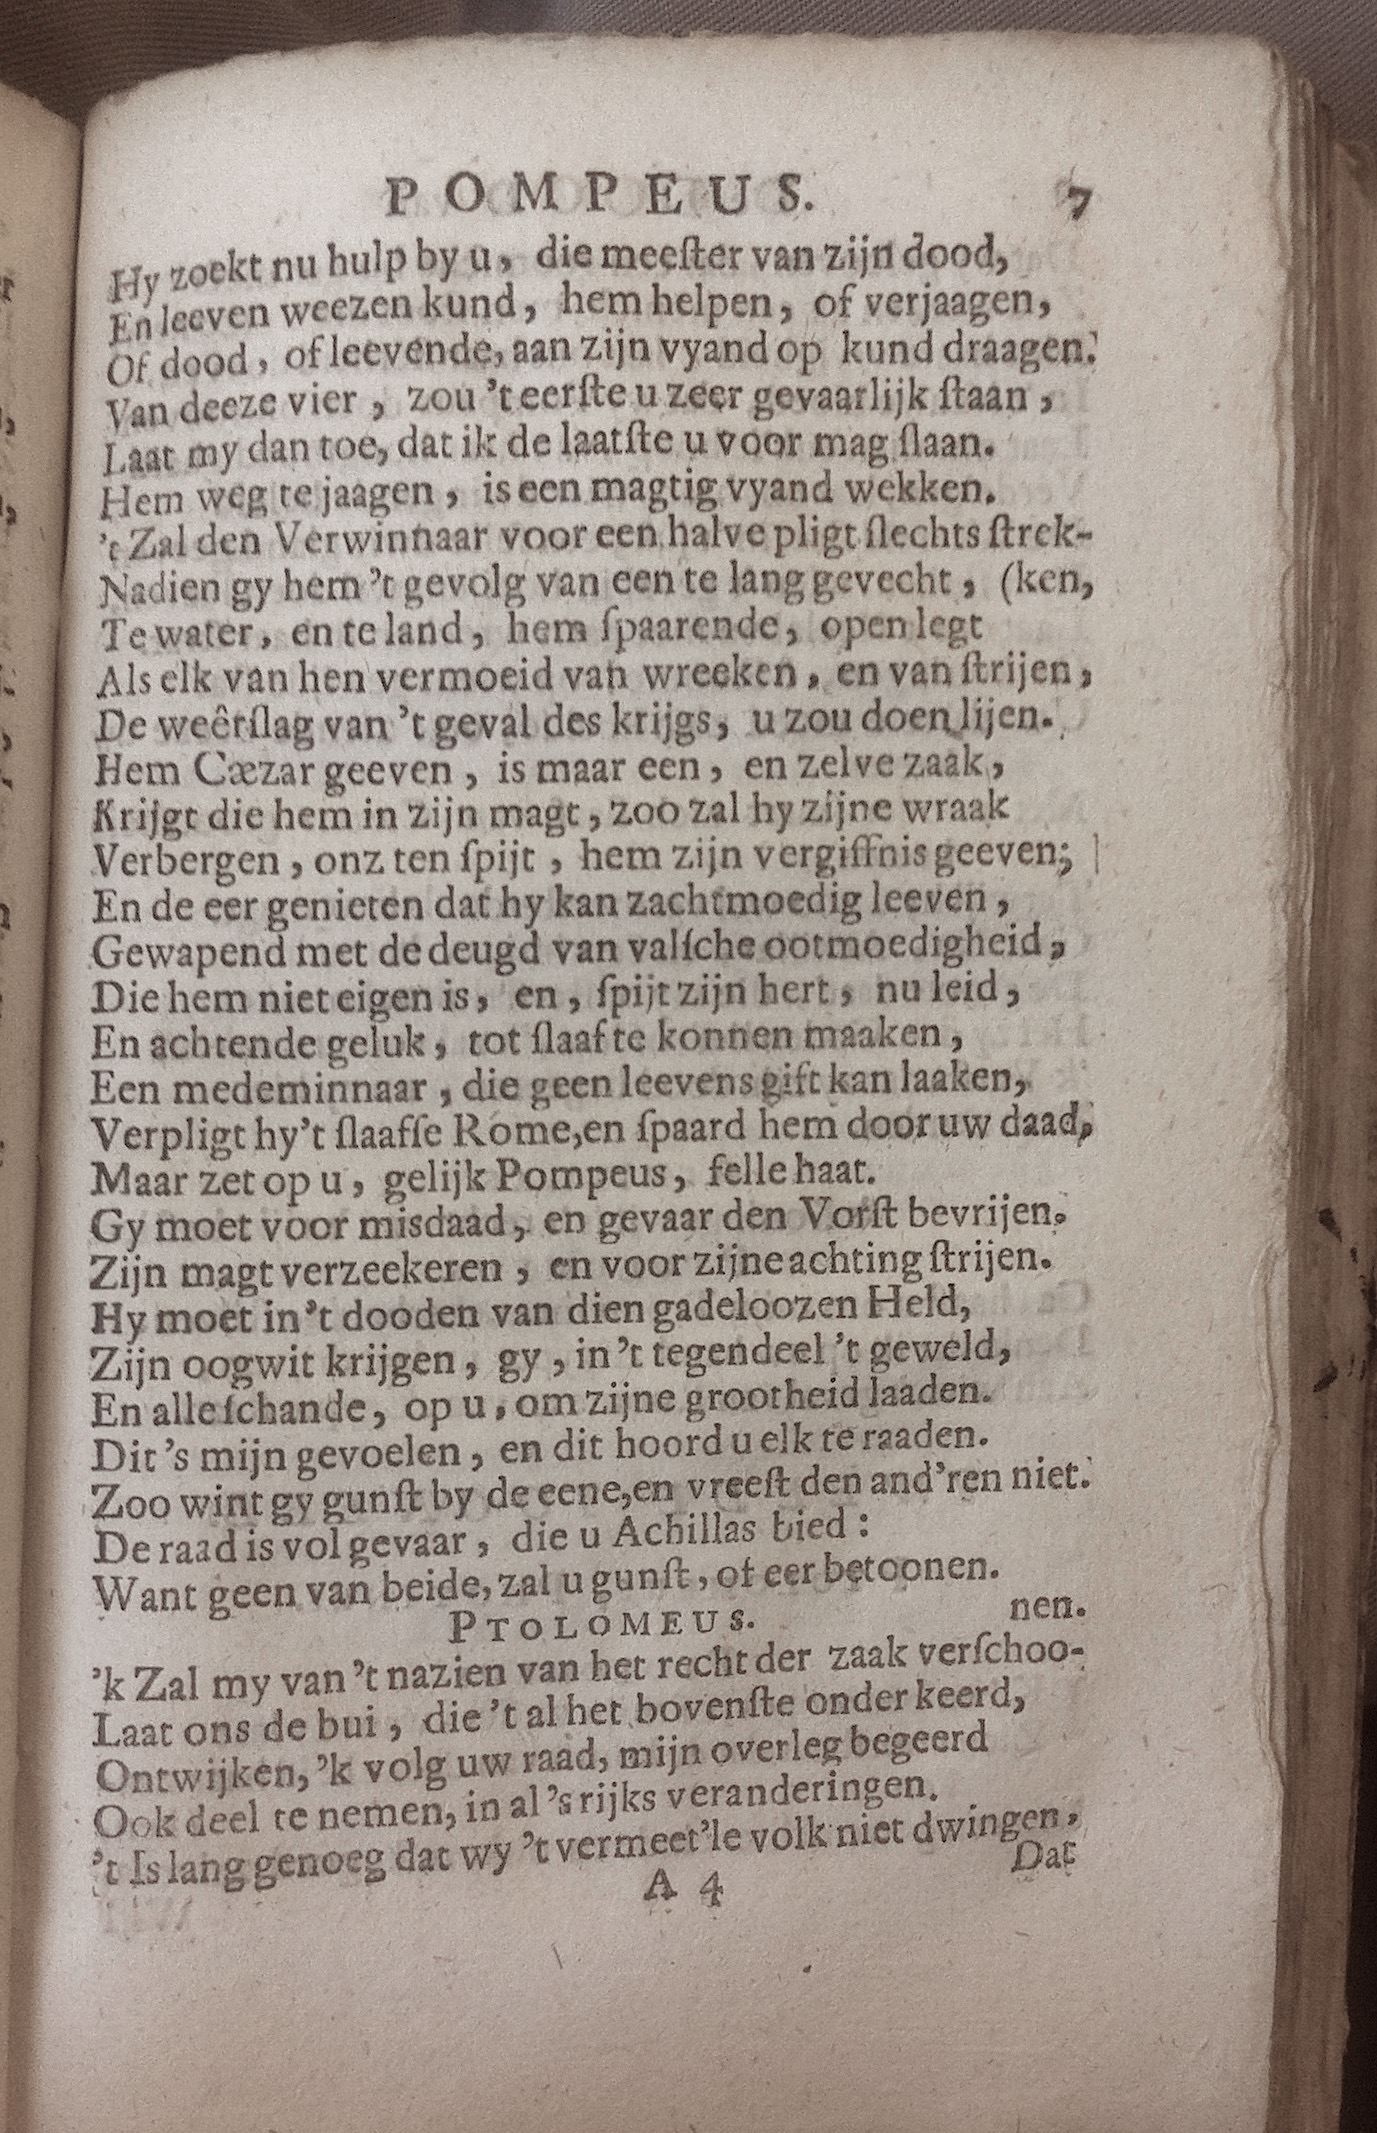 POMPEUS. 7
Hy zoekt nu hulp by u, die meeſter van zijn dood,
En leeven weezen kund, hem helpen, of verjaagen,
Of dood, of leevende, aan zijn vyand op kund draagen.
Van deeze vier, zou 't eerſte u zeer gevaarlijk ſtaan,
Laat my dan toe, dat ik de laatſte u voor mag ſlaan.
Hem weg te jaagen, is een magtig vyand wekken.
't Zal den Verwinnaar voor een halve pligt ſlechts ſtrek-
Nadien gy hem 't gevolg van een te lang gevecht, (ken,
Te water, en te land, hem ſpaarende, open legt
Als elk van hen vermoeid van wreeken, en van ſtrijen,
De weêrſlag van 't geval des krijgs, u zou doen lijen.
Hem Cæzar geeven, is maar een, en zelve zaak,
Krijgt die hem in zijn magt, zoo zal hy zijne wraak
Verbergen, onz ten ſpijt, hem zijn vergiffnis geeven;
En de eer genieten dat hy kan zachtmoedig leeven,
Gewapend met de deugd van valſche ootmoedigheid,
Die hem niet eigen is, en, ſpijt zijn hert, nu leid,
En achtende geluk, tot ſlaaf te konnen maaken,
Een medeminnaar, die geen leevens gift kan laaken,
Verpligt hy 't ſlaafſe Rome, en ſpaard hem door uw daad,
Maar zet op u, gelijk Pompeus, felle haat.
Gy moet voor misdaad, en gevaar den Vorſt bevrijen.
Zijn magt verzeekeren, en voor zijne achting ſtrijen.
Hy moet in 't dooden van dien gadeloozen Held,
Zijn oogwit krijgen, gy, in 't tegendeel 't geweld,
En alle ſchande, op u, om zijne grootheid laaden.
Dit 's mijn gevoelen, en dit hoord u elk te raaden.
Zoo wint gy gunſt by de eene, en vreeſt den and'ren niet.
De raad is vol gevaar, die u Achillas bied:
Want geen van beide, zal u gunſt, of eer betoonen.
PTOLOMEUS. nen.
'k Zal my van 't nazien van het recht der zaak verſchoo-
Laat ons de bui, die 't al het bovenſte onder keerd,
Ontwijken, 'k volg uw raad, mijn overleg begeerd
Ook deel te nemen, in al 's rijks veranderingen.
't Is lang genoeg dat wy 't vermeet'le volk niet dwingen,
A 4 Dat